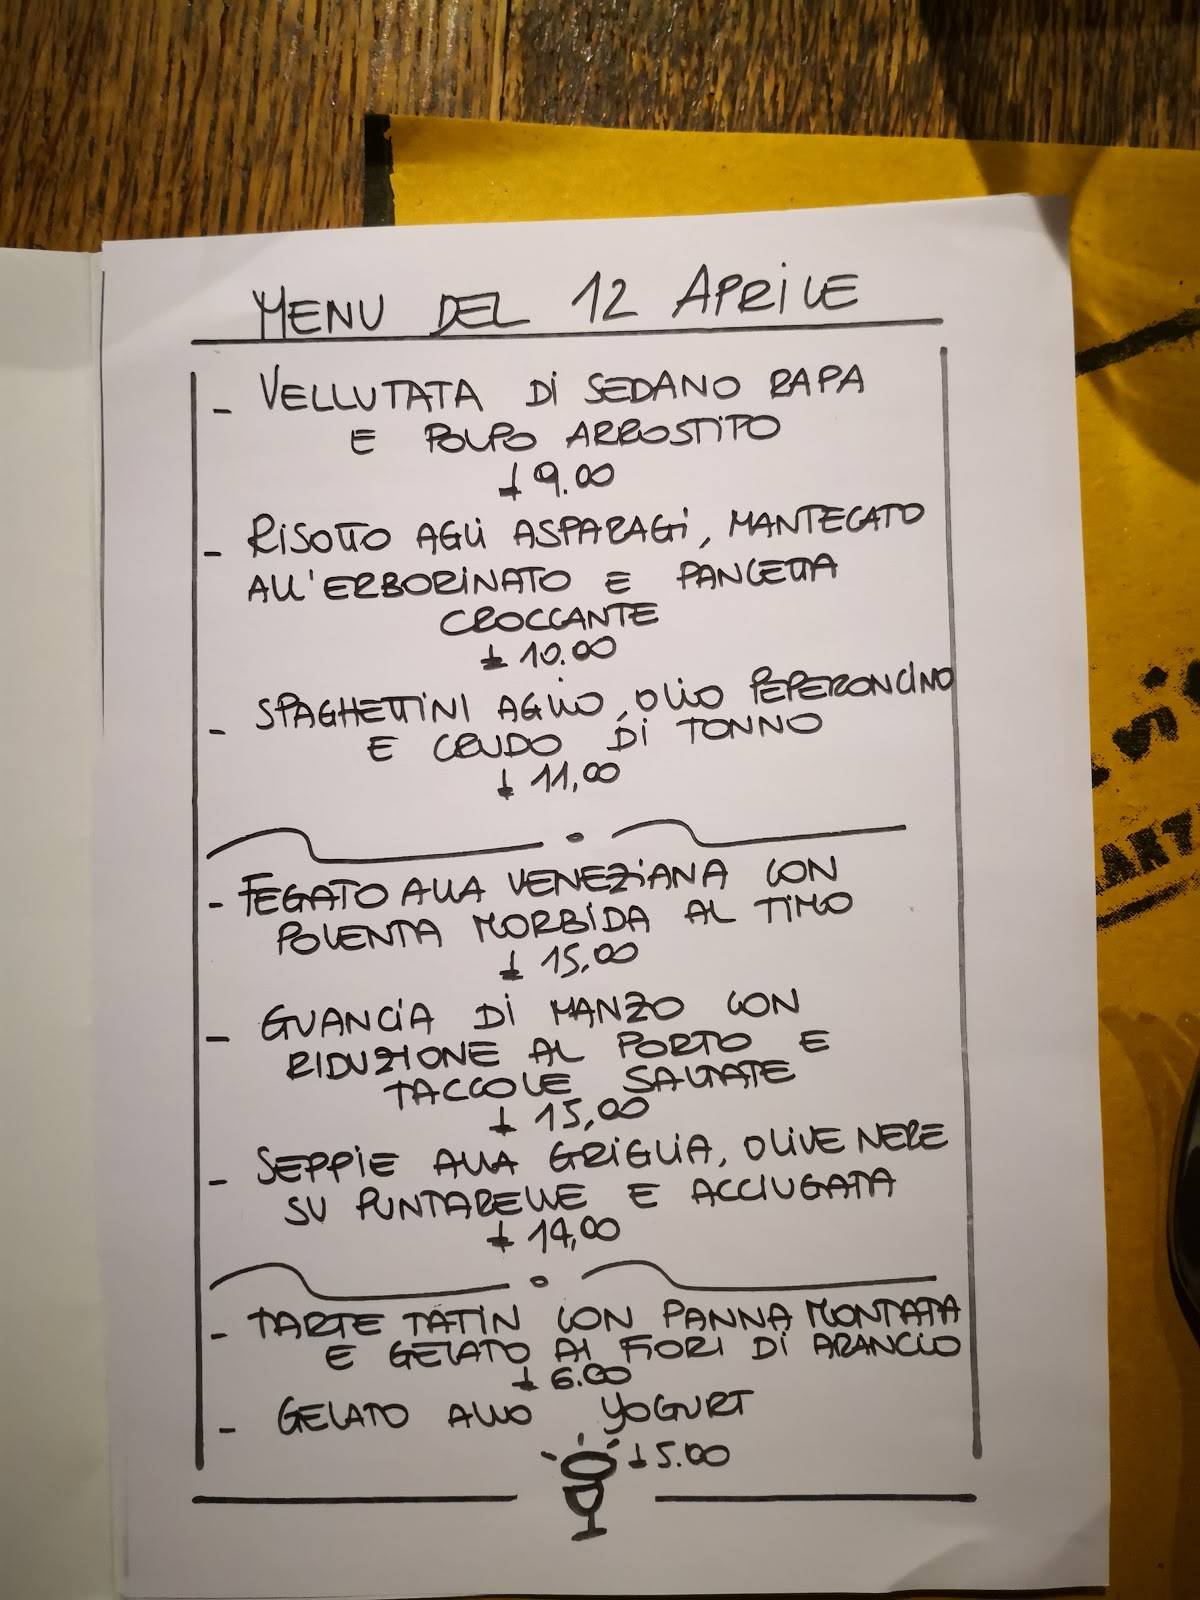 MENU DEL 12 APRILE
- VELLUTATA DI SEDANO RAPA
E POLPO ARROSTITO
£ 9.00
- RISOTTO AGLI ASPARAGI, MANTECATO
ALL'ERBORINATO E PANCETTA
CROCCANTE
£ 10.00
- SPAGHETTINI AGLIO, OLIO PEPERONCINO
E CRUDO DI TONNO
£ 11,00
- FEGATO ALLA VENEZIANA CON
POLENTA MORBIDA AL TIMO
£ 15,00
- GUANCIA DI MANZO CON
RIDUZIONE AL PORTO E
TACCOLE SALTATE
£ 15,00
- SEPPIE ALLA GRIGLIA, OLIVE NERE
SU PUNTARELLE E ACCIUGATA
£ 14,00
- TARTE TATIN CON PANNA MONTATA
E GELATO AI FIORI DI ARANCIO
£ 6.00
- GELATO ALLO YOGURT
£ 5.00